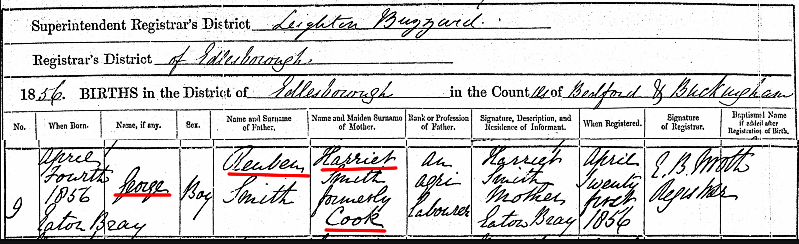 Superintendent Registrar's District Leighton Buzzard.
Registrar's District of Edlesborough.
1856. BIRTHS in the District of Edlesborough in the Counties of Bedford & Buckingham
No. When Born. Name, if any. Sex. Name and Surname of Father. Name and Maiden Surname of Mother. Rank or Profession of Father. Signature, Description, and Residence of Informant. When Registered. Signature of Registrar. Baptismal Name if added after Registration of Birth.
9
April
Fourth
1856
Eaton Bray
George
Boy
Reuben
Smith
Harriet
Smith
formerly
Cook
an
agri
Labourer
Harriet
Smith
Mother
Eaton Bray
April
Twenty
first
1856
E. B.
Registrar